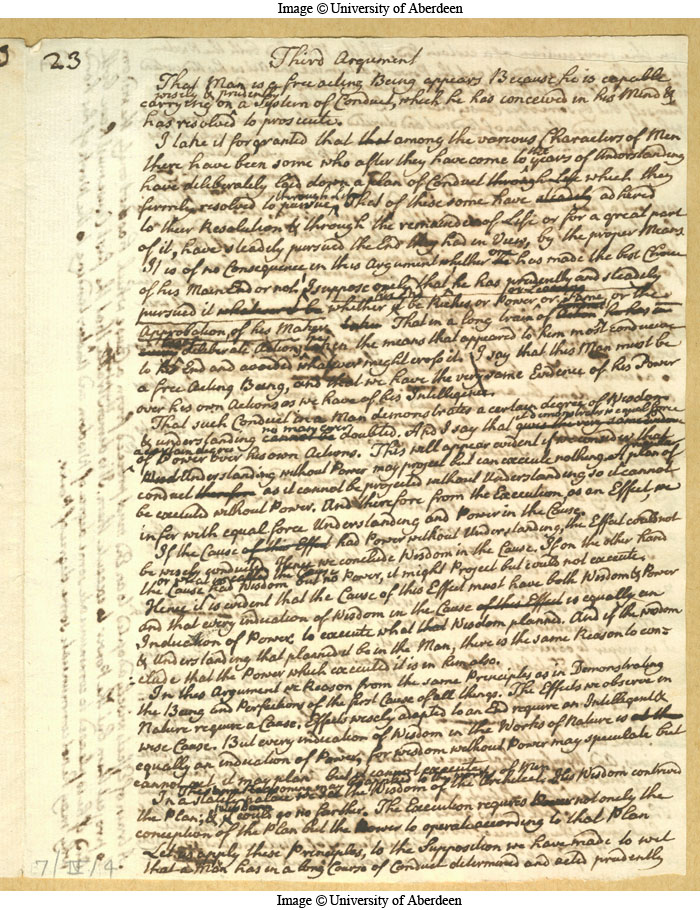 Image © University of Aberdeen
23
Third Argument
That Man is a free acting Being appears Because he is capable
wisely & prudently
carrying on a System of Conduct, which he has conceived in his Mind &
has resolved to prosecute.
I take it for granted that that among the various Characters of Men
there have been some who after they have come to the years of Understanding
have deliberately laid down a plan of Conduct through Life which they
firmly resolved to pursue, that of these some have steadily adhered
to their Resolution & through the remainder of Life or for a great part
of it, have steadily pursued the End they had in View, by the proper Means
It is of no Consequence in this Argument whether he has made the best Choice
of his Main End or not, I suppose onely that he has prudently and steadily
pursued it whether it be Riches or Power or Fame, or the
Approbation of his Maker. That in a long train of
deliberate Actions, the means that appeared to him most conducive
to his End and avoided whatever might cross it. I say that this Man must be
a free Acting Being, and that we have the very same Evidence of his Power
over his own Actions as we have of his Intelligence.
That such Conduct in a Man demonstrates a certain degree of Wisdom
it demonstrates with equal force
& understanding no man ever doubted. And I say that
a certain degree
of Power over his own Actions. This will appear evident if we consider that
Understanding without Power may project but can execute nothing. A plan of
conduct therefore as it cannot be projected without Understanding so it cannot
be executed without Power. And therefore from the Execution, as an Effect, we
infer with equal force Understanding and Power in the Cause.
If the Cause of this Effect had Power without Understanding, the Effect could not
be wisely conducted. Hence we conclude Wisdom in the Cause. If on the other hand
the Cause had Wisdom but no Power, it might Project but could not execute.
Hence it is evident that the Cause of this Effect must have both Wisdom & Power
and that every indication of Wisdom in the Cause of this Effect is equally an
Indication of Power to execute what that Wisdom planned. And if the wisdom
& Understanding that planned it be in the Man, there is the same Reason to con-
clude that the Power which executed it is in him also.
In this Argument we Reason from the same Principles as in Demonstrating
the Being and Perfections of the first Cause of all things. The Effects we observe in
Nature require a Cause. Effects wisely adapted to an End require an Intelligent &
wise Cause. But every indication of Wisdom in the Works of Nature is
equally an indication of Power, for wisdom without Power may speculate but
cannot act it may plan but it cannot execute.
The same Reasoning may be applied to the works of Men
In a stately palace we see the Wisdom of the Architect. His Wisdom contrived
the Plan; & wisdom could go no farther. The Execution requires not onely the
conception of the Plan but the Power to operate according to that Plan
Let us apply these Principles, to the Supposition we have made to wit
that a Man has in a long Course of Conduct determined and acted prudently
7/IV/4
Image © University of Aberdeen